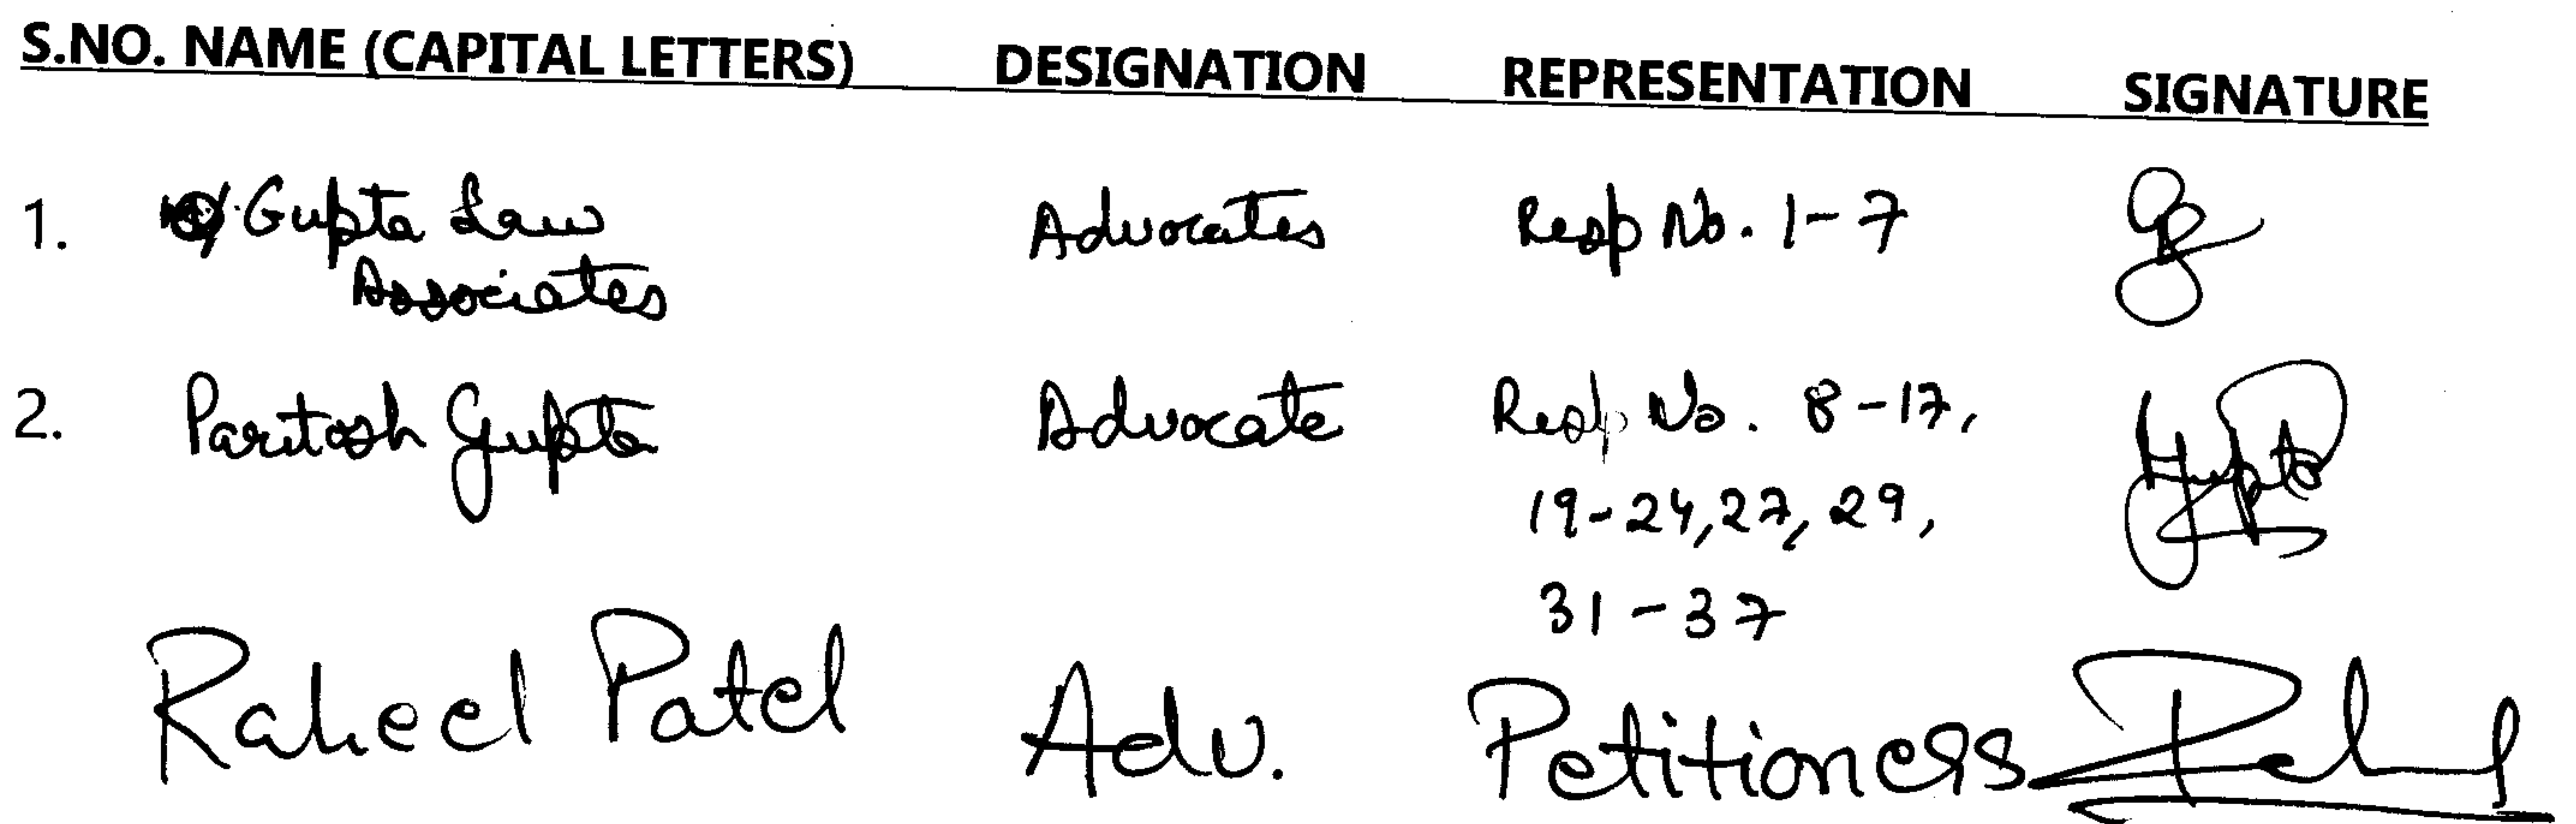 S.NO. NAME (CAPITAL LETTERS) DESIGNATION REPRESENTATION SIGNATURE
1. Gupta Law Advocates Resp No. 1-7
Associates
2. Paritosh Gupta Advocate Resp No. 8-17, Gupta
19-24, 27, 29,
31-37
Raheel Patel Adv. Petitioners